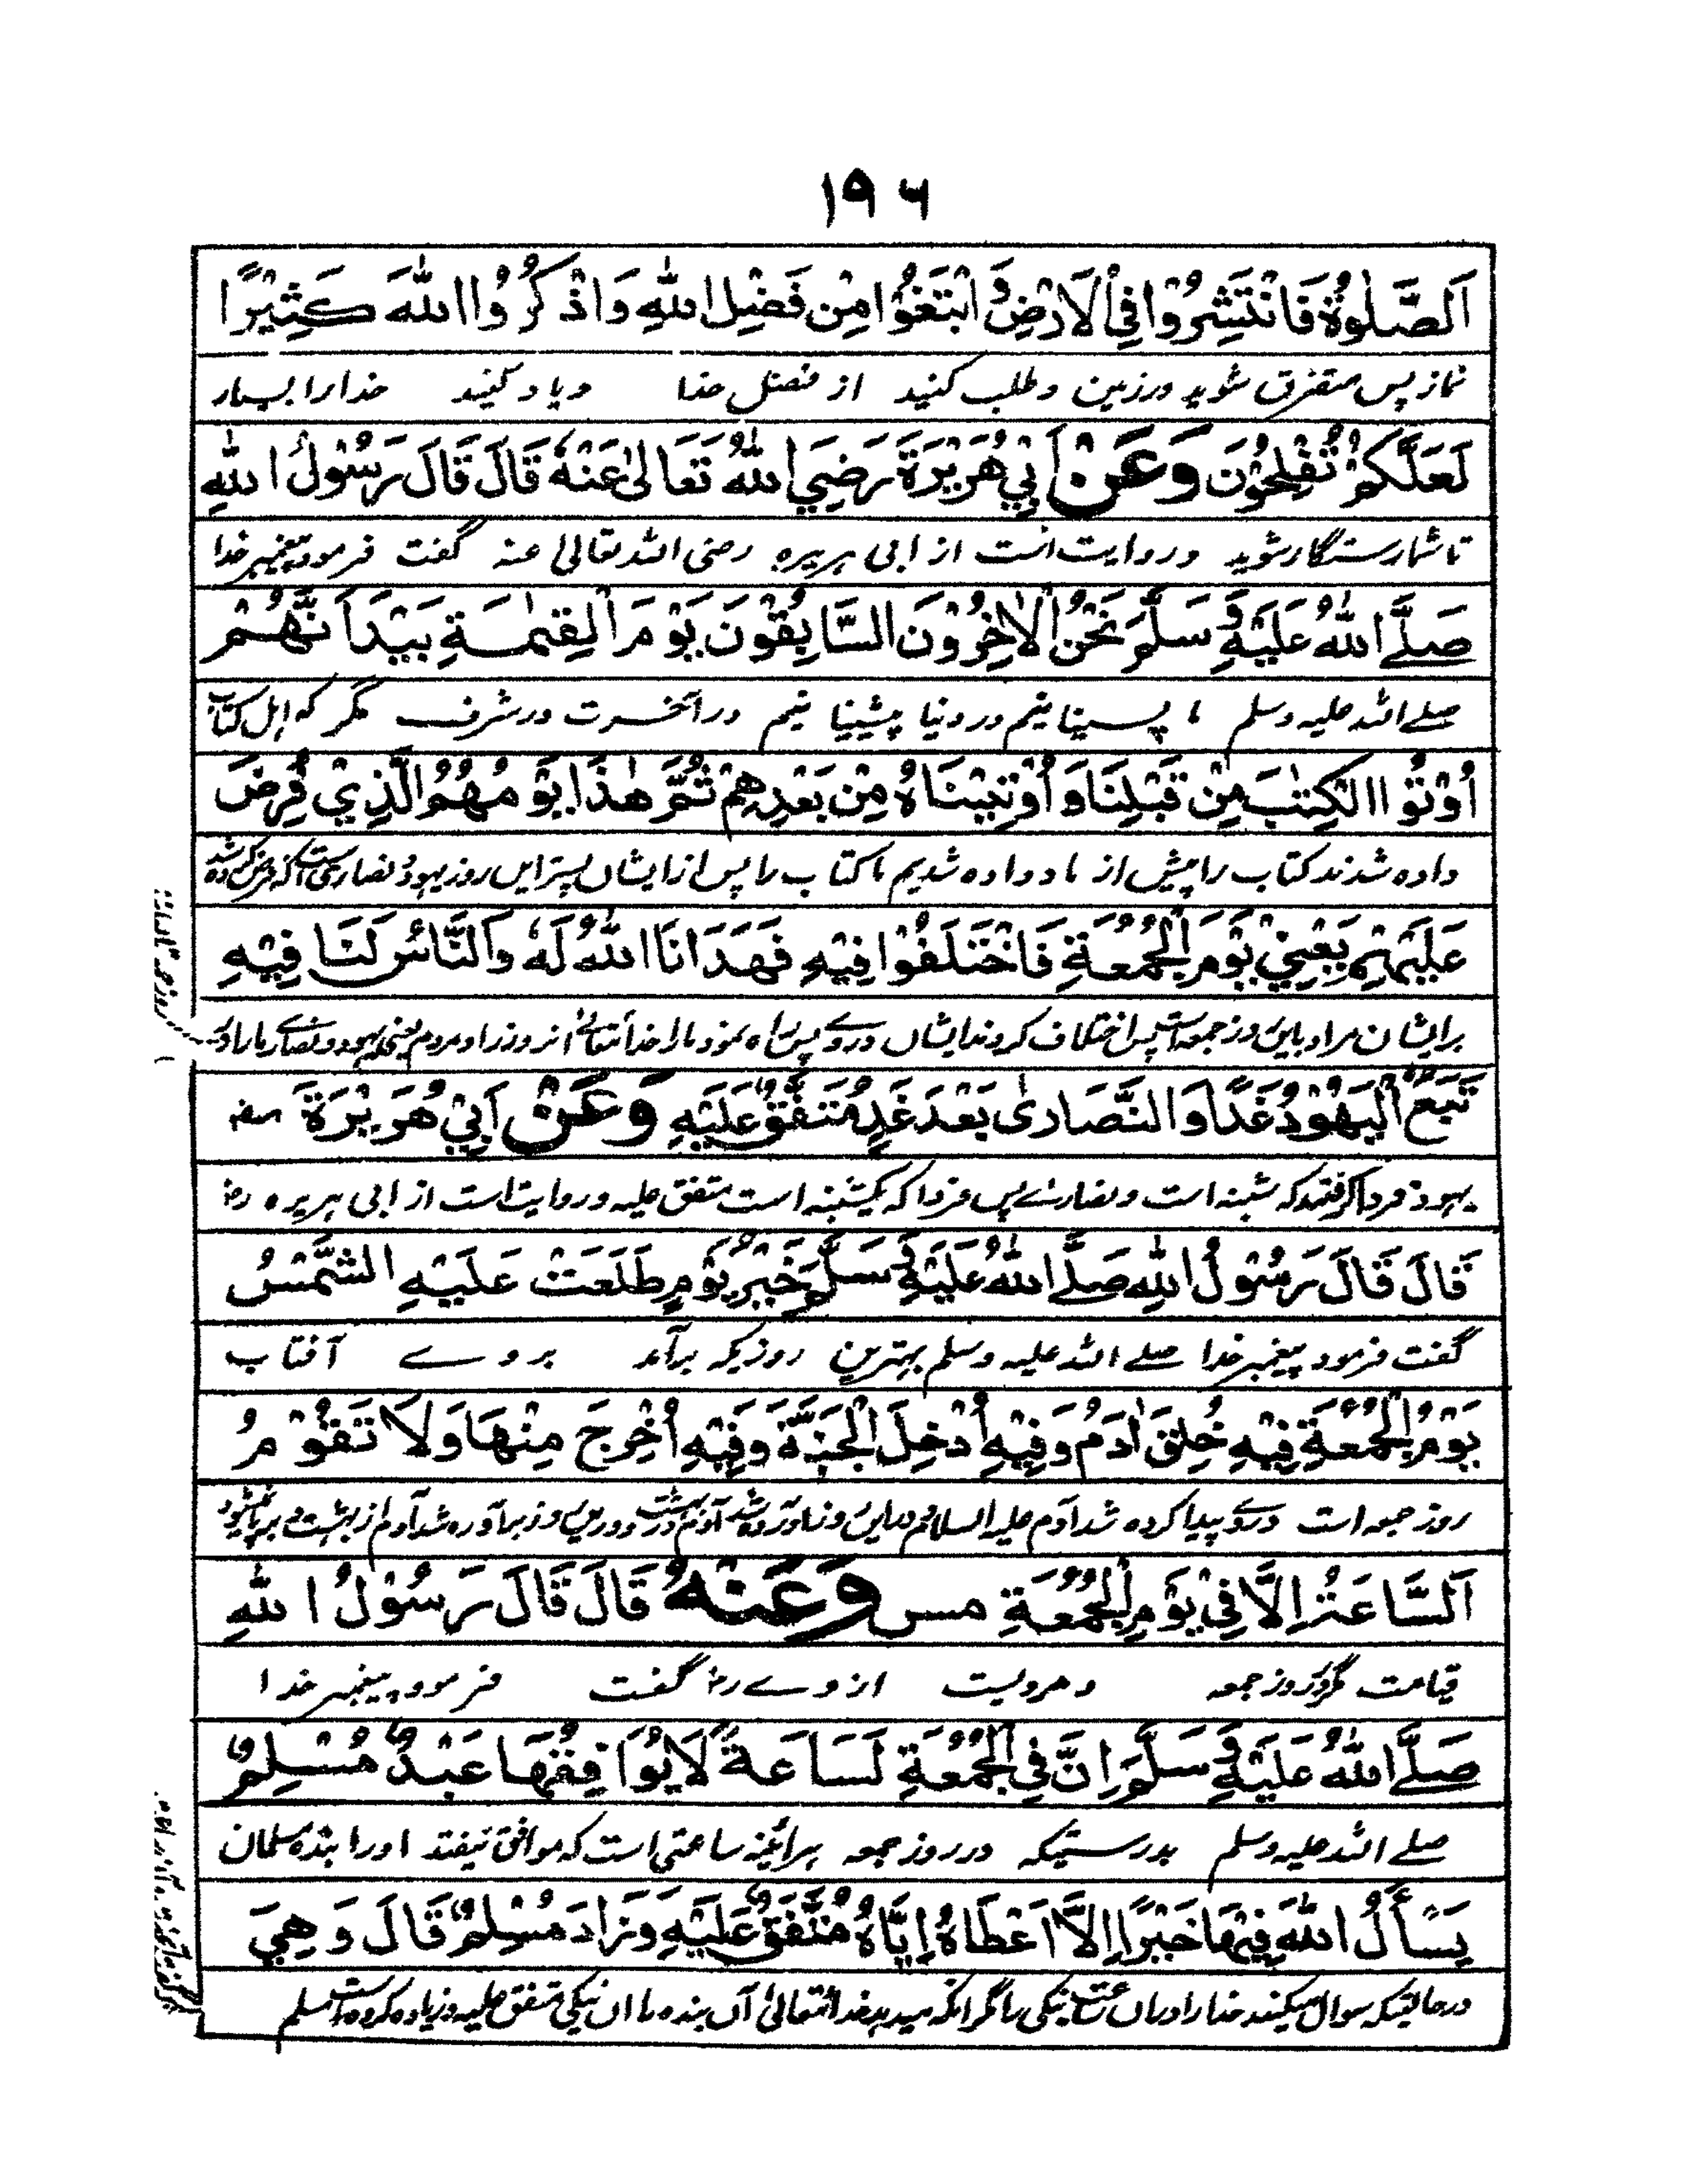 ١٩٦
اَلصَّلٰوةُ فَانْتَشِرُوْا فِي الْاَرْضِ وَابْتَغُوْا مِنْ فَضْلِ اللّٰهِ وَاذْكُرُوا اللّٰهَ كَثِيْرًا
نماز پس متفرق شوید در زمین و طلب کنید از فضل خدا و یاد کنید خدا را بسیار
لَعَلَّكُمْ تُفْلِحُوْنَ وَعَنْ اَبِيْ هُرَيْرَةَ رَضِيَ اللّٰهُ تَعَالىٰ عَنْهُ قَالَ قَالَ رَسُوْلُ اللّٰهِ
تا شما رستگار شوید و روایت است از ابی ہریرہ رضی اللہ تعالیٰ عنہ گفت فرمود پیغمبر خدا
صَلَّے اللّٰهُ عَلَيْهِ وَسَلَّمَ نَحْنُ الْاٰخِرُوْنَ السَّابِقُوْنَ يَوْمَ الْقِيٰمَةِ بَيْدَ اَنَّهُمْ
صلے اللہ علیہ وسلم ما پسینیانیم در دنیا پیشینیانیم در آخرت در شرف مگر کہ اہل کتاب
اُوْتُوا الْكِتٰبَ مِنْ قَبْلِنَا وَاُوْتِيْنَاهُ مِنْ بَعْدِهِمْ ثُمَّ هٰذَا يَوْمُهُمُ الَّذِيْ فُرِضَ
داده شدند کتاب را پیش از ما و داده شدیم ما کتاب را پس از ایشان پستر این روز یہود و نصاری است آنکہ فرض کرده شد
عَلَيْهِمْ يَعْنِيْ يَوْمَ الْجُمُعَةِ فَاخْتَلَفُوْا فِيْهِ فَهَدَانَا اللّٰهُ لَهٗ وَالنَّاسُ لَنَا فِيْهِ
بر ایشان مراد باین روز جمعہ است پس اختلاف کردند ایشان دروے پس راه نمود ما را خدا تعالیٰ آن روز را و مردم یعنی یہود و نصارے ما را در
تَبَعٌ اَلْيَهُوْدُ غَدًا وَالنَّصَارىٰ بَعْدَ غَدٍ مُتَّفَقٌ عَلَيْهِ وَعَنْ اَبِيْ هُرَيْرَةَ رضہ
یہود فردا گرفتند کہ شنبہ است و نصارے پس فردا کہ یکشنبہ است متفق علیہ و روایت است از ابی ہریرہ رضہ
قَالَ قَالَ رَسُوْلُ اللّٰهِ صَلَّے اللّٰهُ عَلَيْهِ وَسَلَّمَ خَيْرُ يَوْمٍ طَلَعَتْ عَلَيْهِ الشَّمْسُ
گفت فرمود پیغمبر خدا صلے اللہ علیہ وسلم بہترین روزیکہ برآمد بروے آفتاب
يَوْمُ الْجُمُعَةِ فِيْهِ خُلِقَ اٰدَمُ وَفِيْهِ اُدْخِلَ الْجَنَّةَ وَفِيْهِ اُخْرِجَ مِنْهَا وَلَا تَقُوْمُ
روز جمعہ است دروے پیدا کرده شد آدم علیہ السلام و دراین روز درآورده شد آدم در بہشت و درین روز برآورده شد آدم از بہشت و برپا نمیشود
اَلسَّاعَةُ اِلَّا فِيْ يَوْمِ الْجُمُعَةِ مس وَعَنْهُ قَالَ قَالَ رَسُوْلُ اللّٰهِ
قیامت مگر در روز جمعہ و مرویست از وے رضہ گفت فرمود پیغمبر خدا
صَلَّے اللّٰهُ عَلَيْهِ وَسَلَّمَ اِنَّ فِي الْجُمُعَةِ لَسَاعَةً لَا يُوَافِقُهَا عَبْدٌ مُسْلِمٌ
صلے اللہ علیہ وسلم بدرستیکہ در روز جمعہ ہرآئینہ ساعتی است کہ موافق نیفتد او را بنده مسلمان
يَسْأَلُ اللّٰهَ فِيْهَا خَيْرًا اِلَّا اَعْطَاهُ اِيَّاهُ مُتَّفَقٌ عَلَيْهِ وَزَادَ مُسْلِمٌ قَالَ وَهِيَ
در حالتیکہ سوال میکند خدا را دران ساعت نیکی را مگر آنکہ میدہد خدا تعالیٰ آن بنده را ان نیکی متفق علیہ و زیاده کرده است مسلم